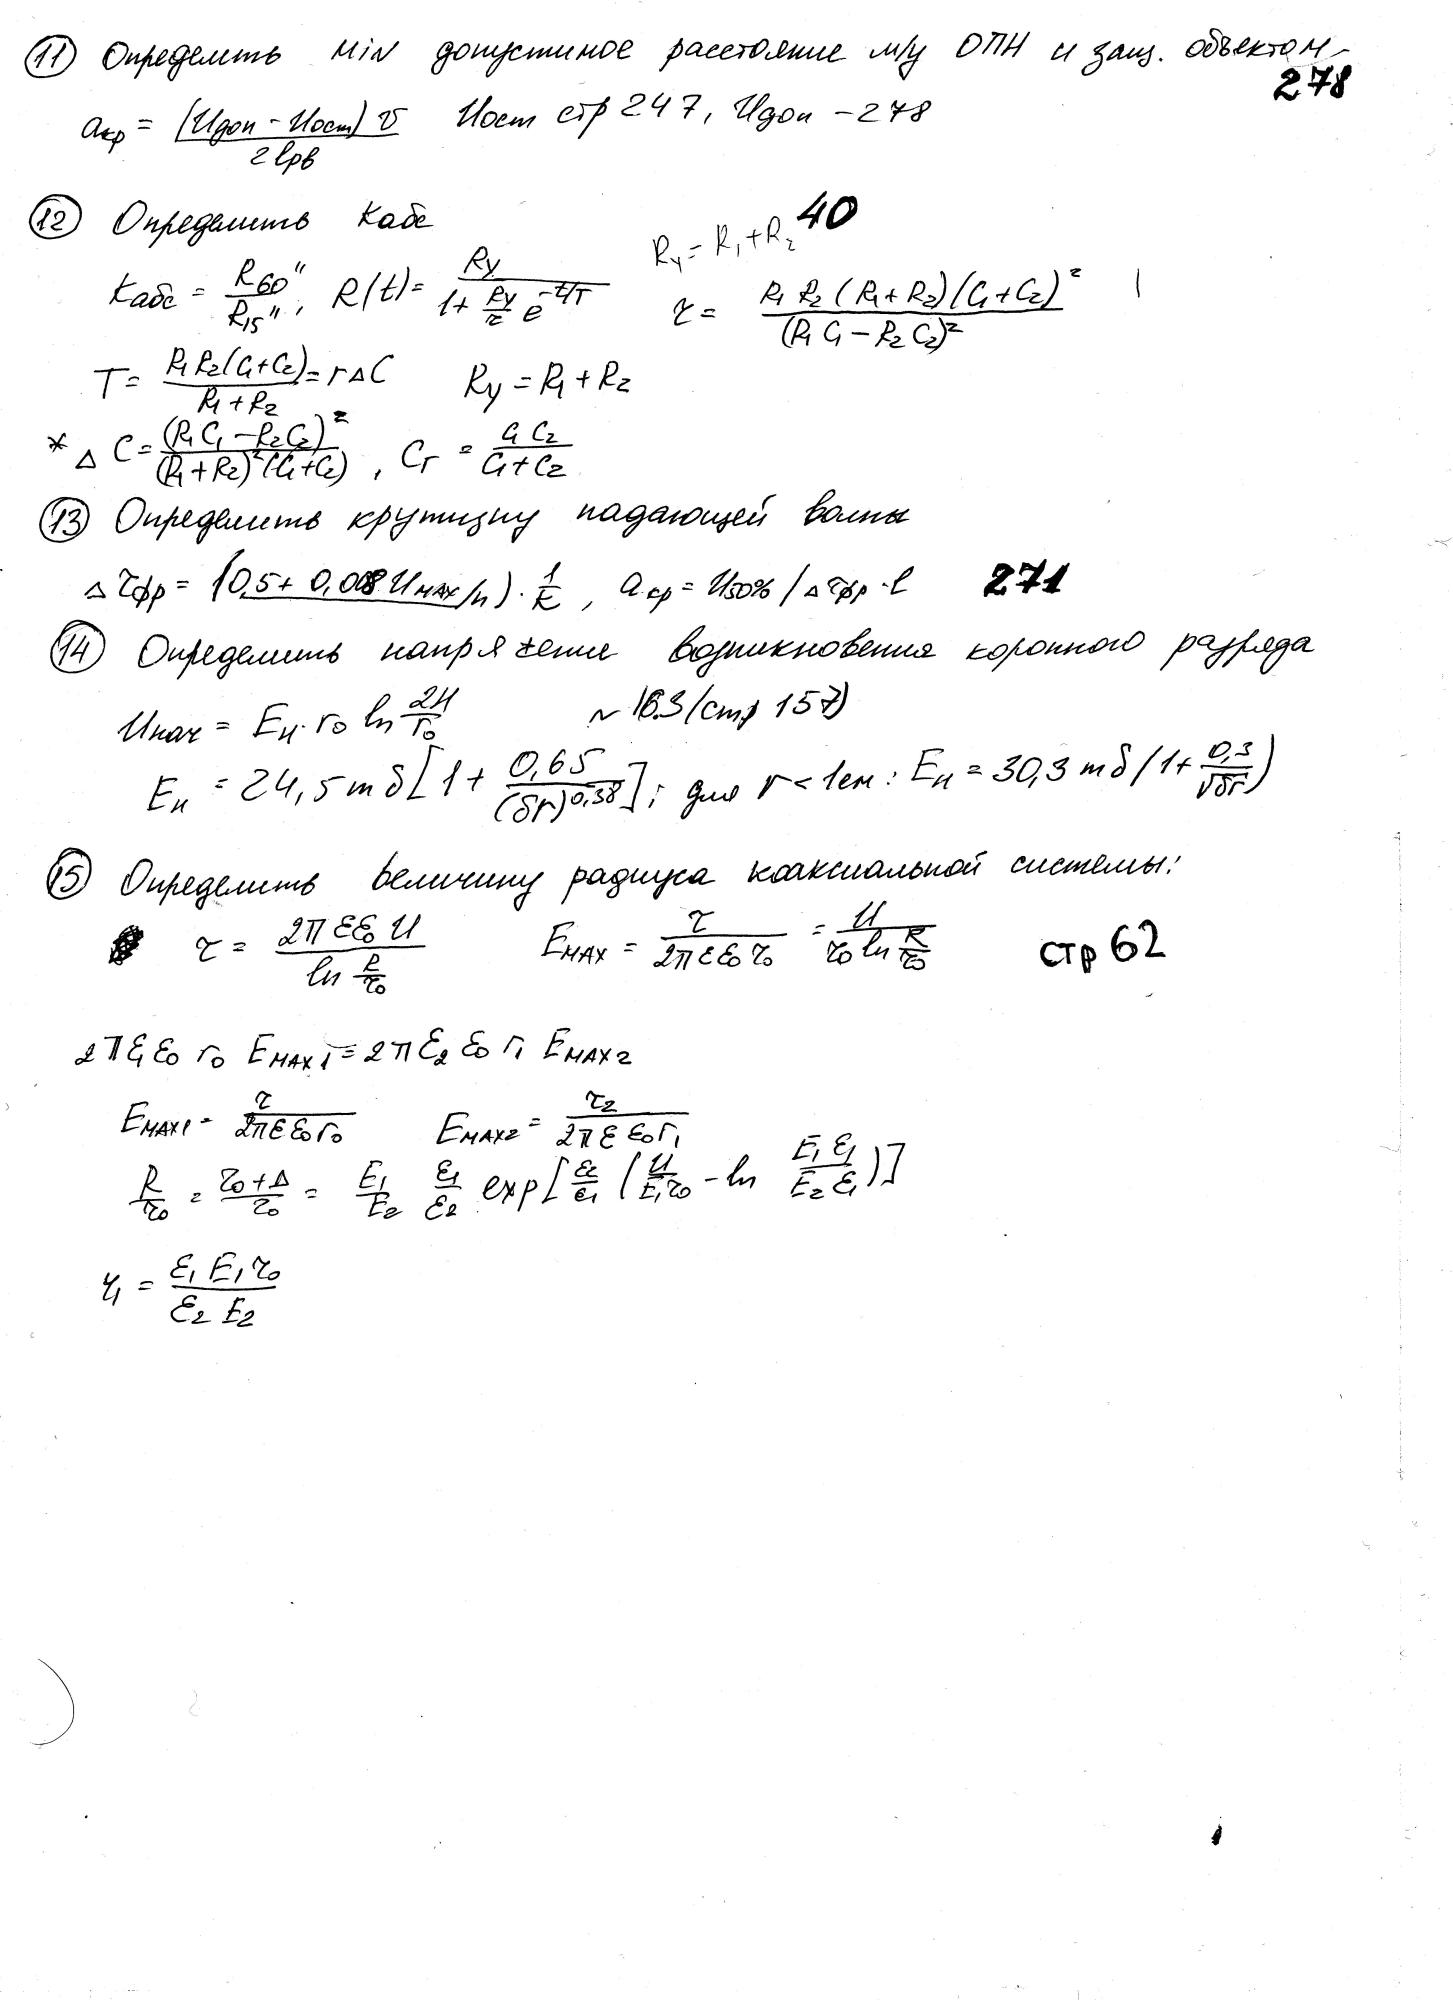 11 Определить min допустимое расстояние м/у ОПН и защ. объектом
278
aкр = (Uдоп - Uост) v / 2 lрв   Uост стр 247, Uдоп - 278
12 Определить Кабс   40
Кабс = R60" / R15", R(t) = Rу / (1 + Rу/r e^(-t/T))   Rу = R1 + R2   r = R1 R2 (R1+R2)(C1+C2)² / (R1 C1 - R2 C2)²
T = R1 R2 (C1+C2) / (R1+R2) = r Δ C   Rу = R1 + R2
* Δ C = (R1 C1 - R2 C2)² / (R1+R2)² (C1+C2), Cг = C1 C2 / (C1+C2)
13 Определить крутизну падающей волны
Δ τфр = (0,5 + 0,008 Umax/h) · 1/k, aкр = U50% / Δ τфр · l   271
14 Определить напряжение возникновения коронного разряда
Uнач = Eн · r0 ln 2H/r0   ~ 16.3 (стр 157)
Eн = 24,5 m δ [1 + 0,65 / (δr)^0,38]; для r < 1см: Eн = 30,3 m δ (1 + 0,3/√δr)
15 Определить величину радиуса коаксиальной системы:
τ = 2π ε ε0 U / ln R/r0   Emax = τ / 2π ε ε0 r0 = U / r0 ln R/r0   стр 62
2π ε1 ε0 r0 Emax1 = 2π ε2 ε0 r1 Emax2
Emax1 = τ / 2π ε ε0 r0   Emax2 = τ2 / 2π ε ε0 r1
R/r0 = (r0 + Δ)/r0 = E1/E2 ε1/ε2 exp[ε2/ε1 (U/E1r0 - ln E1 ε1 / E2 ε1)]
r1 = ε1 E1 r0 / ε2 E2